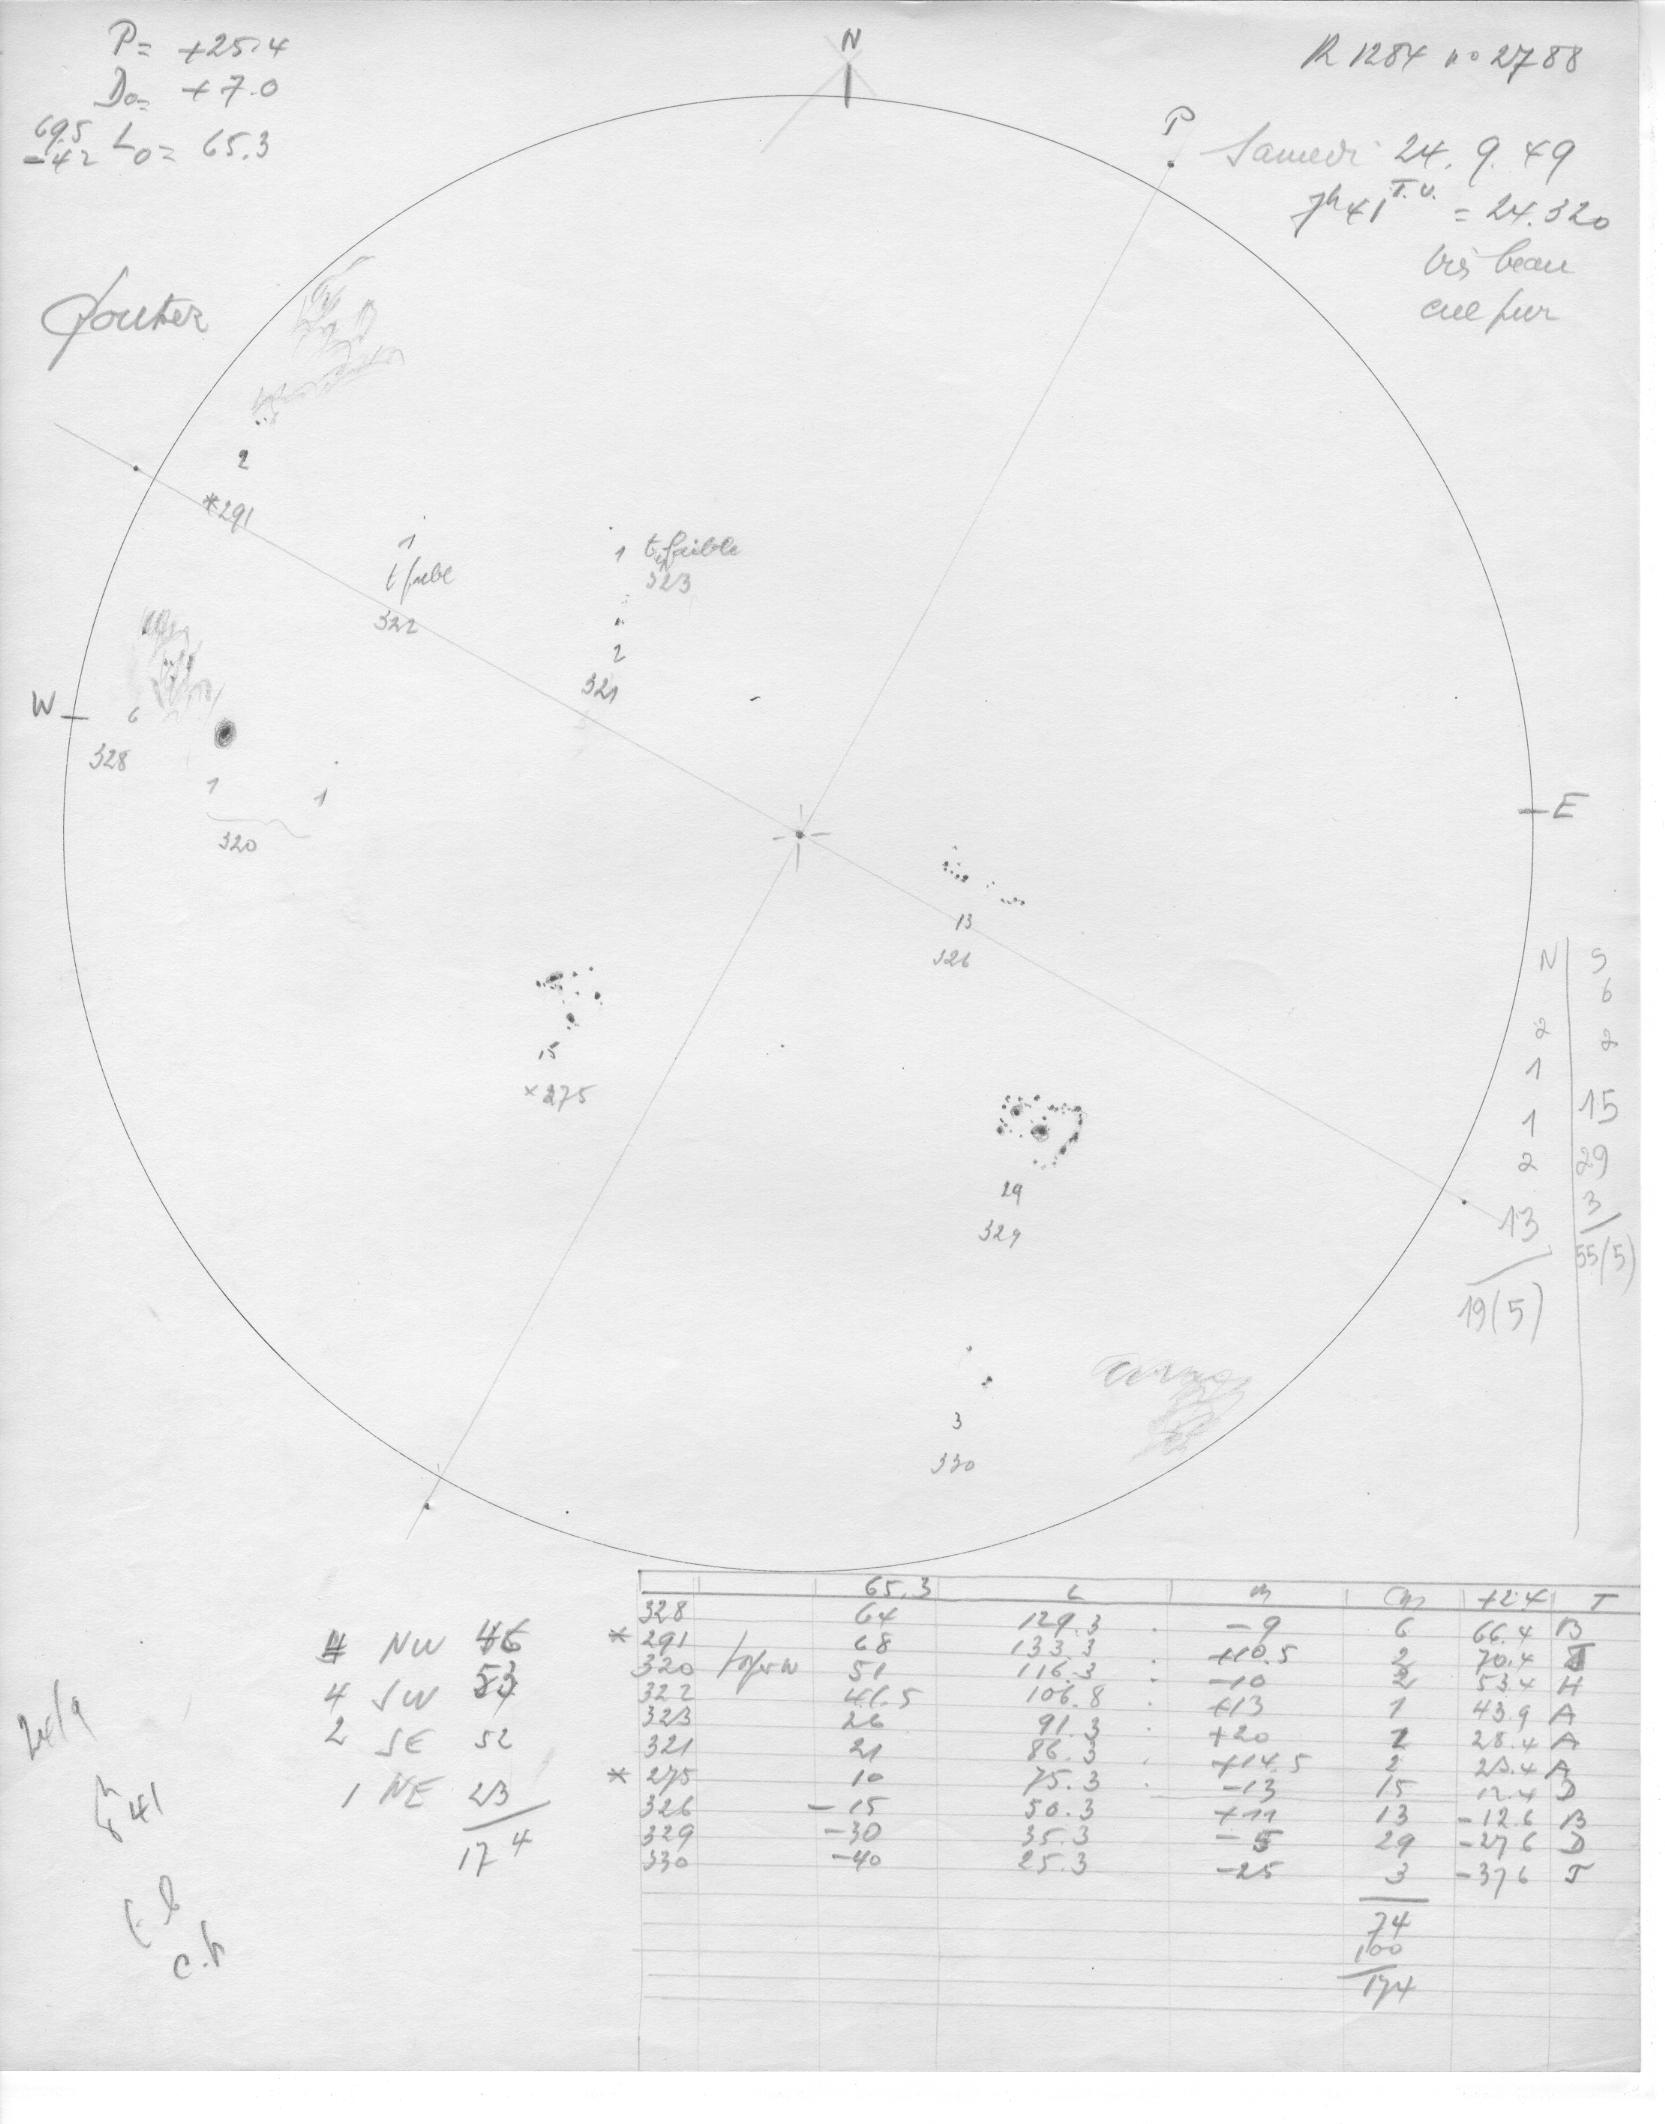 P= +25.4
Do= +7.0
69.5
-42 Lo= 65.3
N
R 1284 no 2788
P
Samedi 24. 9. 49
7h41 T.U. = 24.320
très beau
ciel pur
2
*291
1
322
1 t. faible
323
2
321
W
6
328
1 1
320
E
13
326
15
*275
29
329
3
330
N S
6
2 2
1
1 15
2 29
13 3
19(5) 55(5)
65.3 L m Cm +2.4 T
328 64 129.3 -9 6 66.4 B
* 291 68 133.3 +10.5 2 70.4
320 51 116.3 -10 2 53.4 H
322 41.5 106.8 +13 1 43.9 A
323 26 91.3 +20 1 28.4 A
321 21 86.3 +14.5 2 23.4 A
* 275 10 75.3 -13 15 12.4 D
326 -15 50.3 +11 13 -12.6 B
329 -30 35.3 -5 29 -27.6 D
330 -40 25.3 -25 3 -37.6 J
74
100
174
4 NW 46
4 SW 53
2 SE 52
1 NE 23
174
24/9
8h 41
t b
c.p